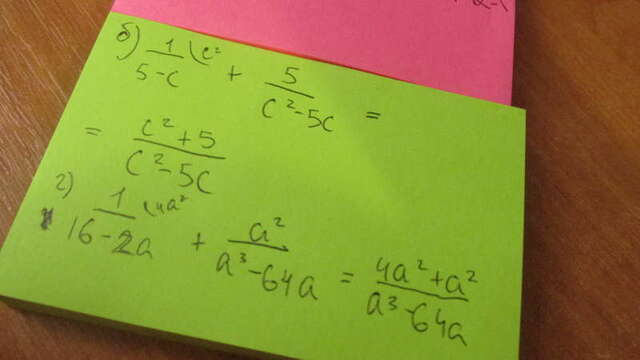 б) 1/(5-c) \c² + 5/(c²-5c) =
= (c²+5)/(c²-5c)
г) 1/(16-2a) \4a² + a²/(a³-64a) = (4a²+a²)/(a³-64a)